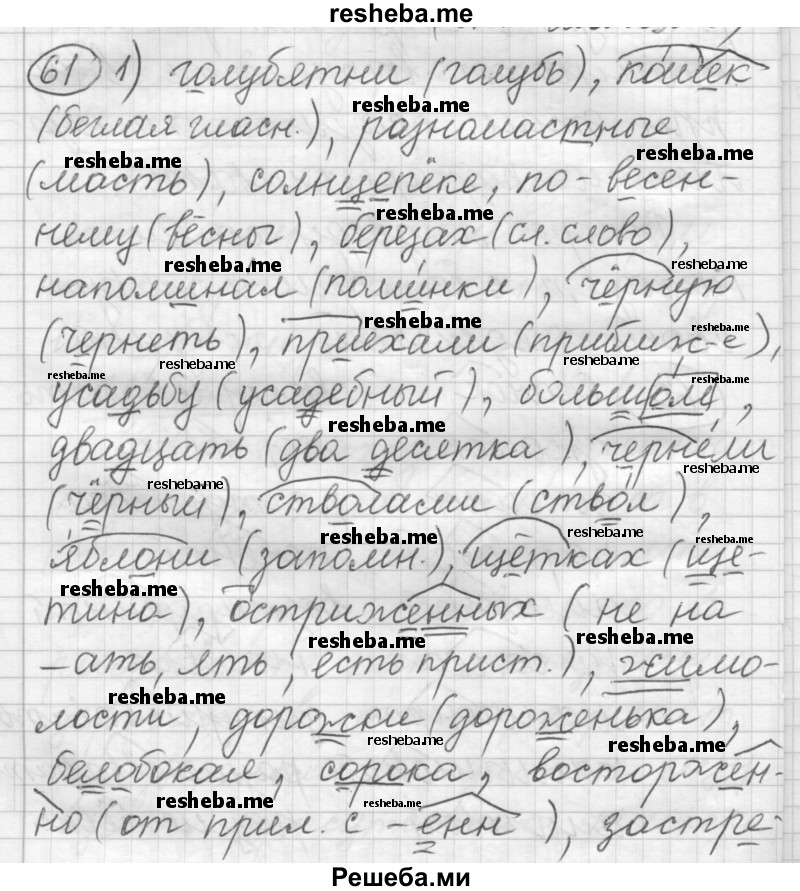 resheba.me
61 1) голубятни (голубь), кошек
resheba.me
(беглая гласн.), разномастные
resheba.me resheba.me
(масть), солнцепёке, по-весен-
resheba.me
нему (вёсны), берёзах (сл. слово),
resheba.me resheba.me
напоминал (поминки), чёрную
resheba.me resheba.me
(чернеть), приехали (приближ-е),
resheba.me resheba.me resheba.me
усадьбу (усадебный), большая,
resheba.me
двадцать (два десятка), чернели
resheba.me resheba.me
(чёрный), стволами (ствол),
resheba.me resheba.me resheba.me
яблони (запомн.), щётках (ще-
resheba.me
тина), остриженных (не на
resheba.me resheba.me
-ать, ять, есть прист.), жимо-
resheba.me
лости, дорожки (дороженька),
resheba.me resheba.me
белобокая, сорока, восторжен-
resheba.me resheba.me
но (от прил. с -енн), застре-
Решеба.ми